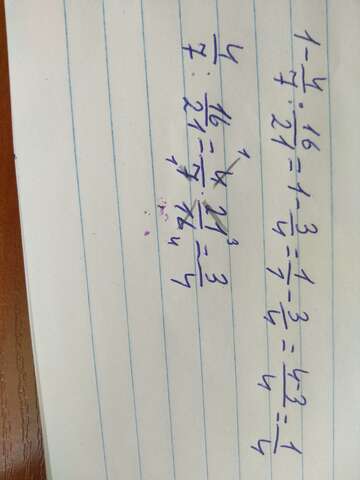 1 - 4/7 : 16/21 = 1 - 3/4 = 1/1 - 3/4 = 4-3/4 = 1/4
4/7 : 16/21 = 4/7 · 21/16 = 3/4
1 3
1 4